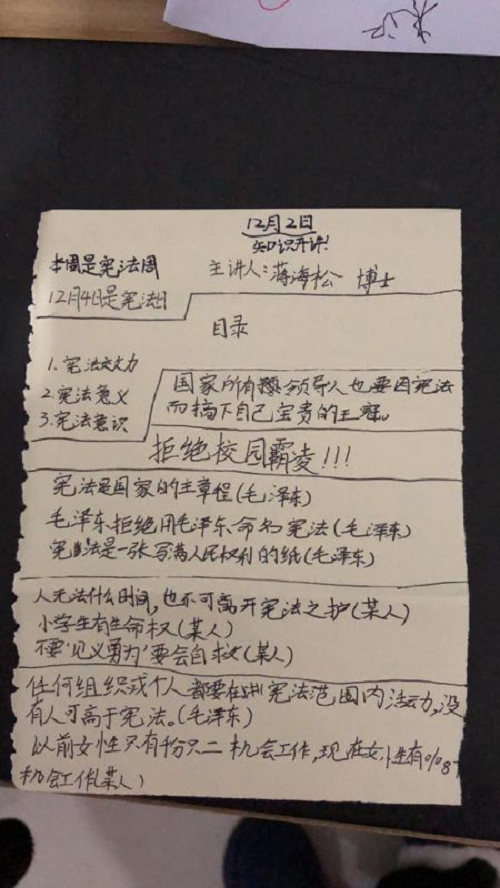 12月2日
知识开讲!
本周是宪法周
主讲人:蒋海松 博士
12月4日是宪法日
目录
1.宪法效力
2.宪法意义
3.宪法意识
国家所有 领导人也要因宪法
而摘下自己宝贵的王冠。
拒绝校园霸凌!!!
宪法是国家的主章程(毛泽东)
毛泽东拒绝用毛泽东命名宪法(毛泽东)
宪法是一张写满人民权利的纸(毛泽东)
人无法什么时间,也不可离开宪法之护(某人)
小学生有生命权(某人)
不要'见义勇为'要会自救(某人)
任何组织或个人都要在 宪法范围内活动,没
有人可高于宪法。(毛泽东)
以前女性只有 机会工作,现在女性有
机会工作(某人)